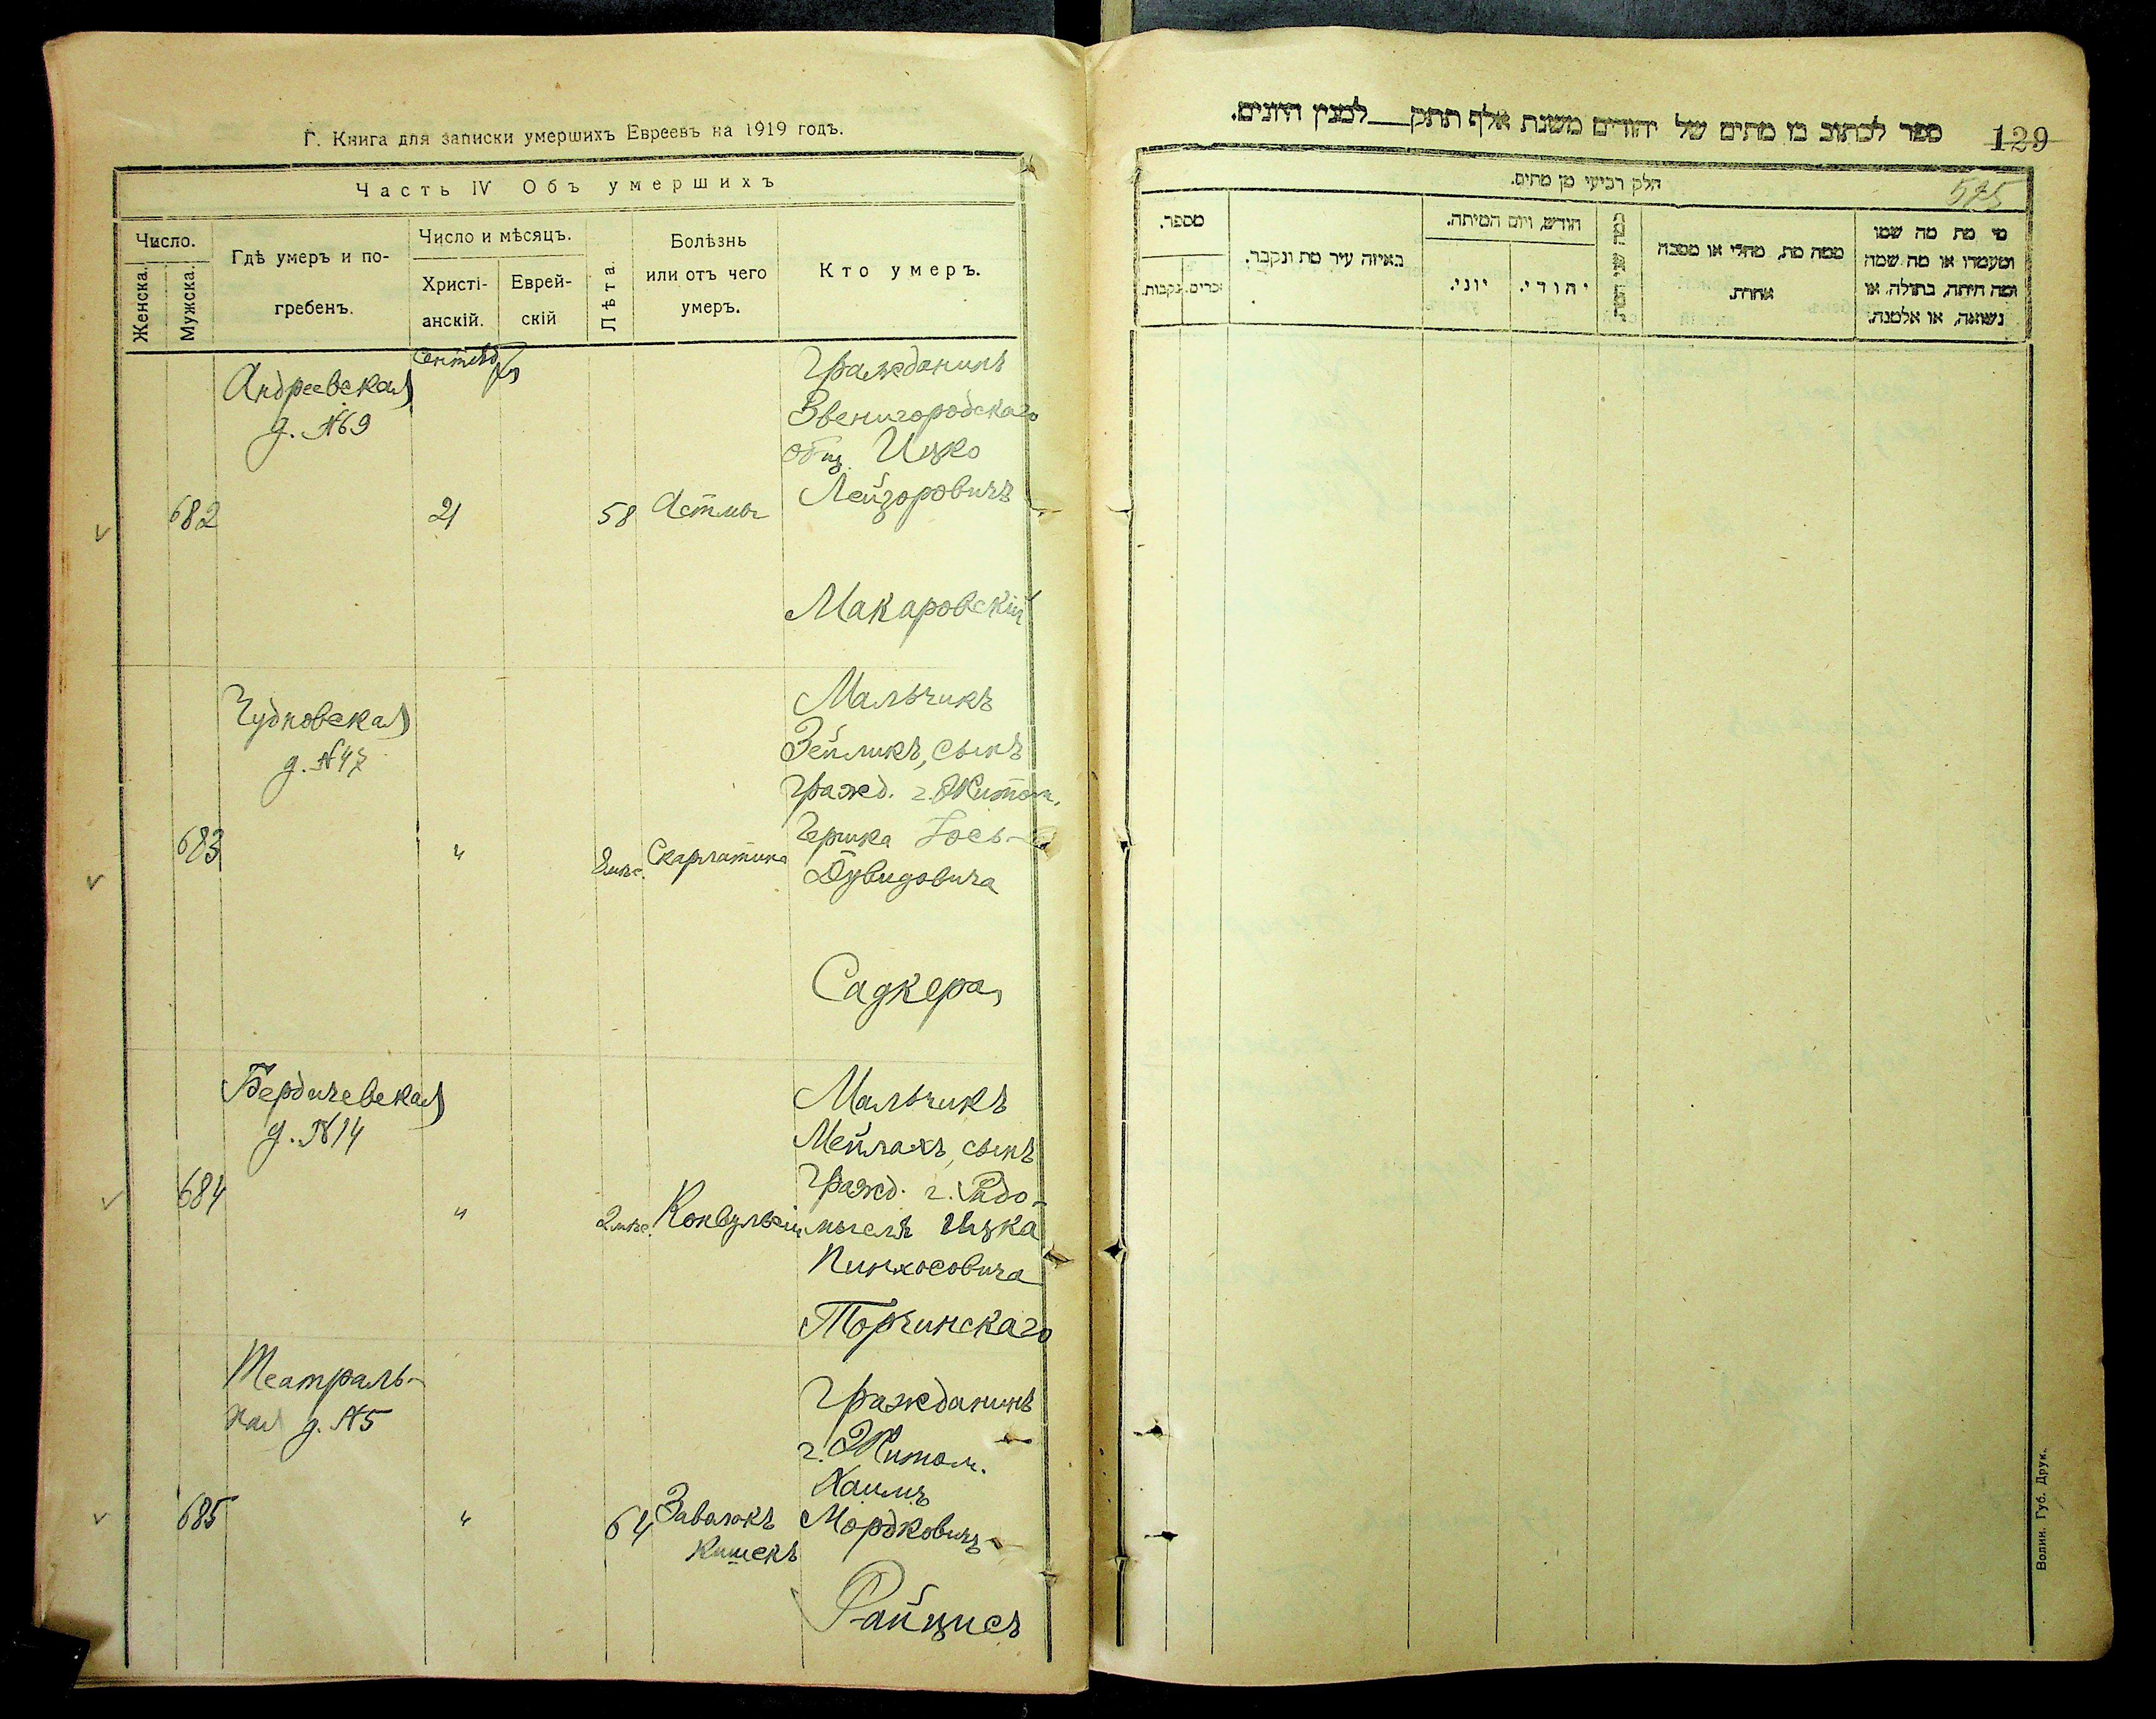 Г. Книга для записки умершихъ Евреевъ на 1919 годъ.
Часть IV Объ умершихъ
Число.
Женска.
Мужска.
Гдѣ умеръ и по-
гребенъ.
Число и мѣсяцъ.
Христі-
анскій.
Еврей-
скій
Лѣта.
Болѣзнь
или отъ чего
умеръ.
Кто умеръ.
682
Андреевская
д. №69
Сентября
21
58
Астма
Гражданинъ
Звенигородскаго
общ. Ицко
Лейзоровичъ
Макаровскій
683
Чудновская
д. №47
"
8 мѣс.
Скарлатина
Мальчикъ
Зейликъ, сынъ
гражд. г. Житом.
Гершка Іось-
Дувидовича
Садкера
684
Бердичевская
д. №14
"
2 мѣс.
Конвульсіи
Мальчикъ
Мейлахъ, сынъ
гражд. г. Радо-
мысля Ицка
Пинхосовича
Торчинскаго
685
Театраль-
ная д. №5
"
64
Заворокъ
кишекъ
Гражданинъ
г. Житом.
Хаимъ
Мордковичъ
Райцисъ
ספר לכתוב בו מתים של יהודים משנת אלף תתק— למנין היונים.
129
575
חלק רביעי מן מתים.
מספר.
נקבות.
זכרים.
באיזה עיר מת ונקבר.
חודש, ויום המיתה.
יוני.
יהודי.
ממה מת, מחלי או מסבה
אחרת.
מי מת מה שמו
ומעמדו או מה שמה
ומה היתה, בתולה, או
נשואה, או אלמנה.
Волин. Губ. Друк.